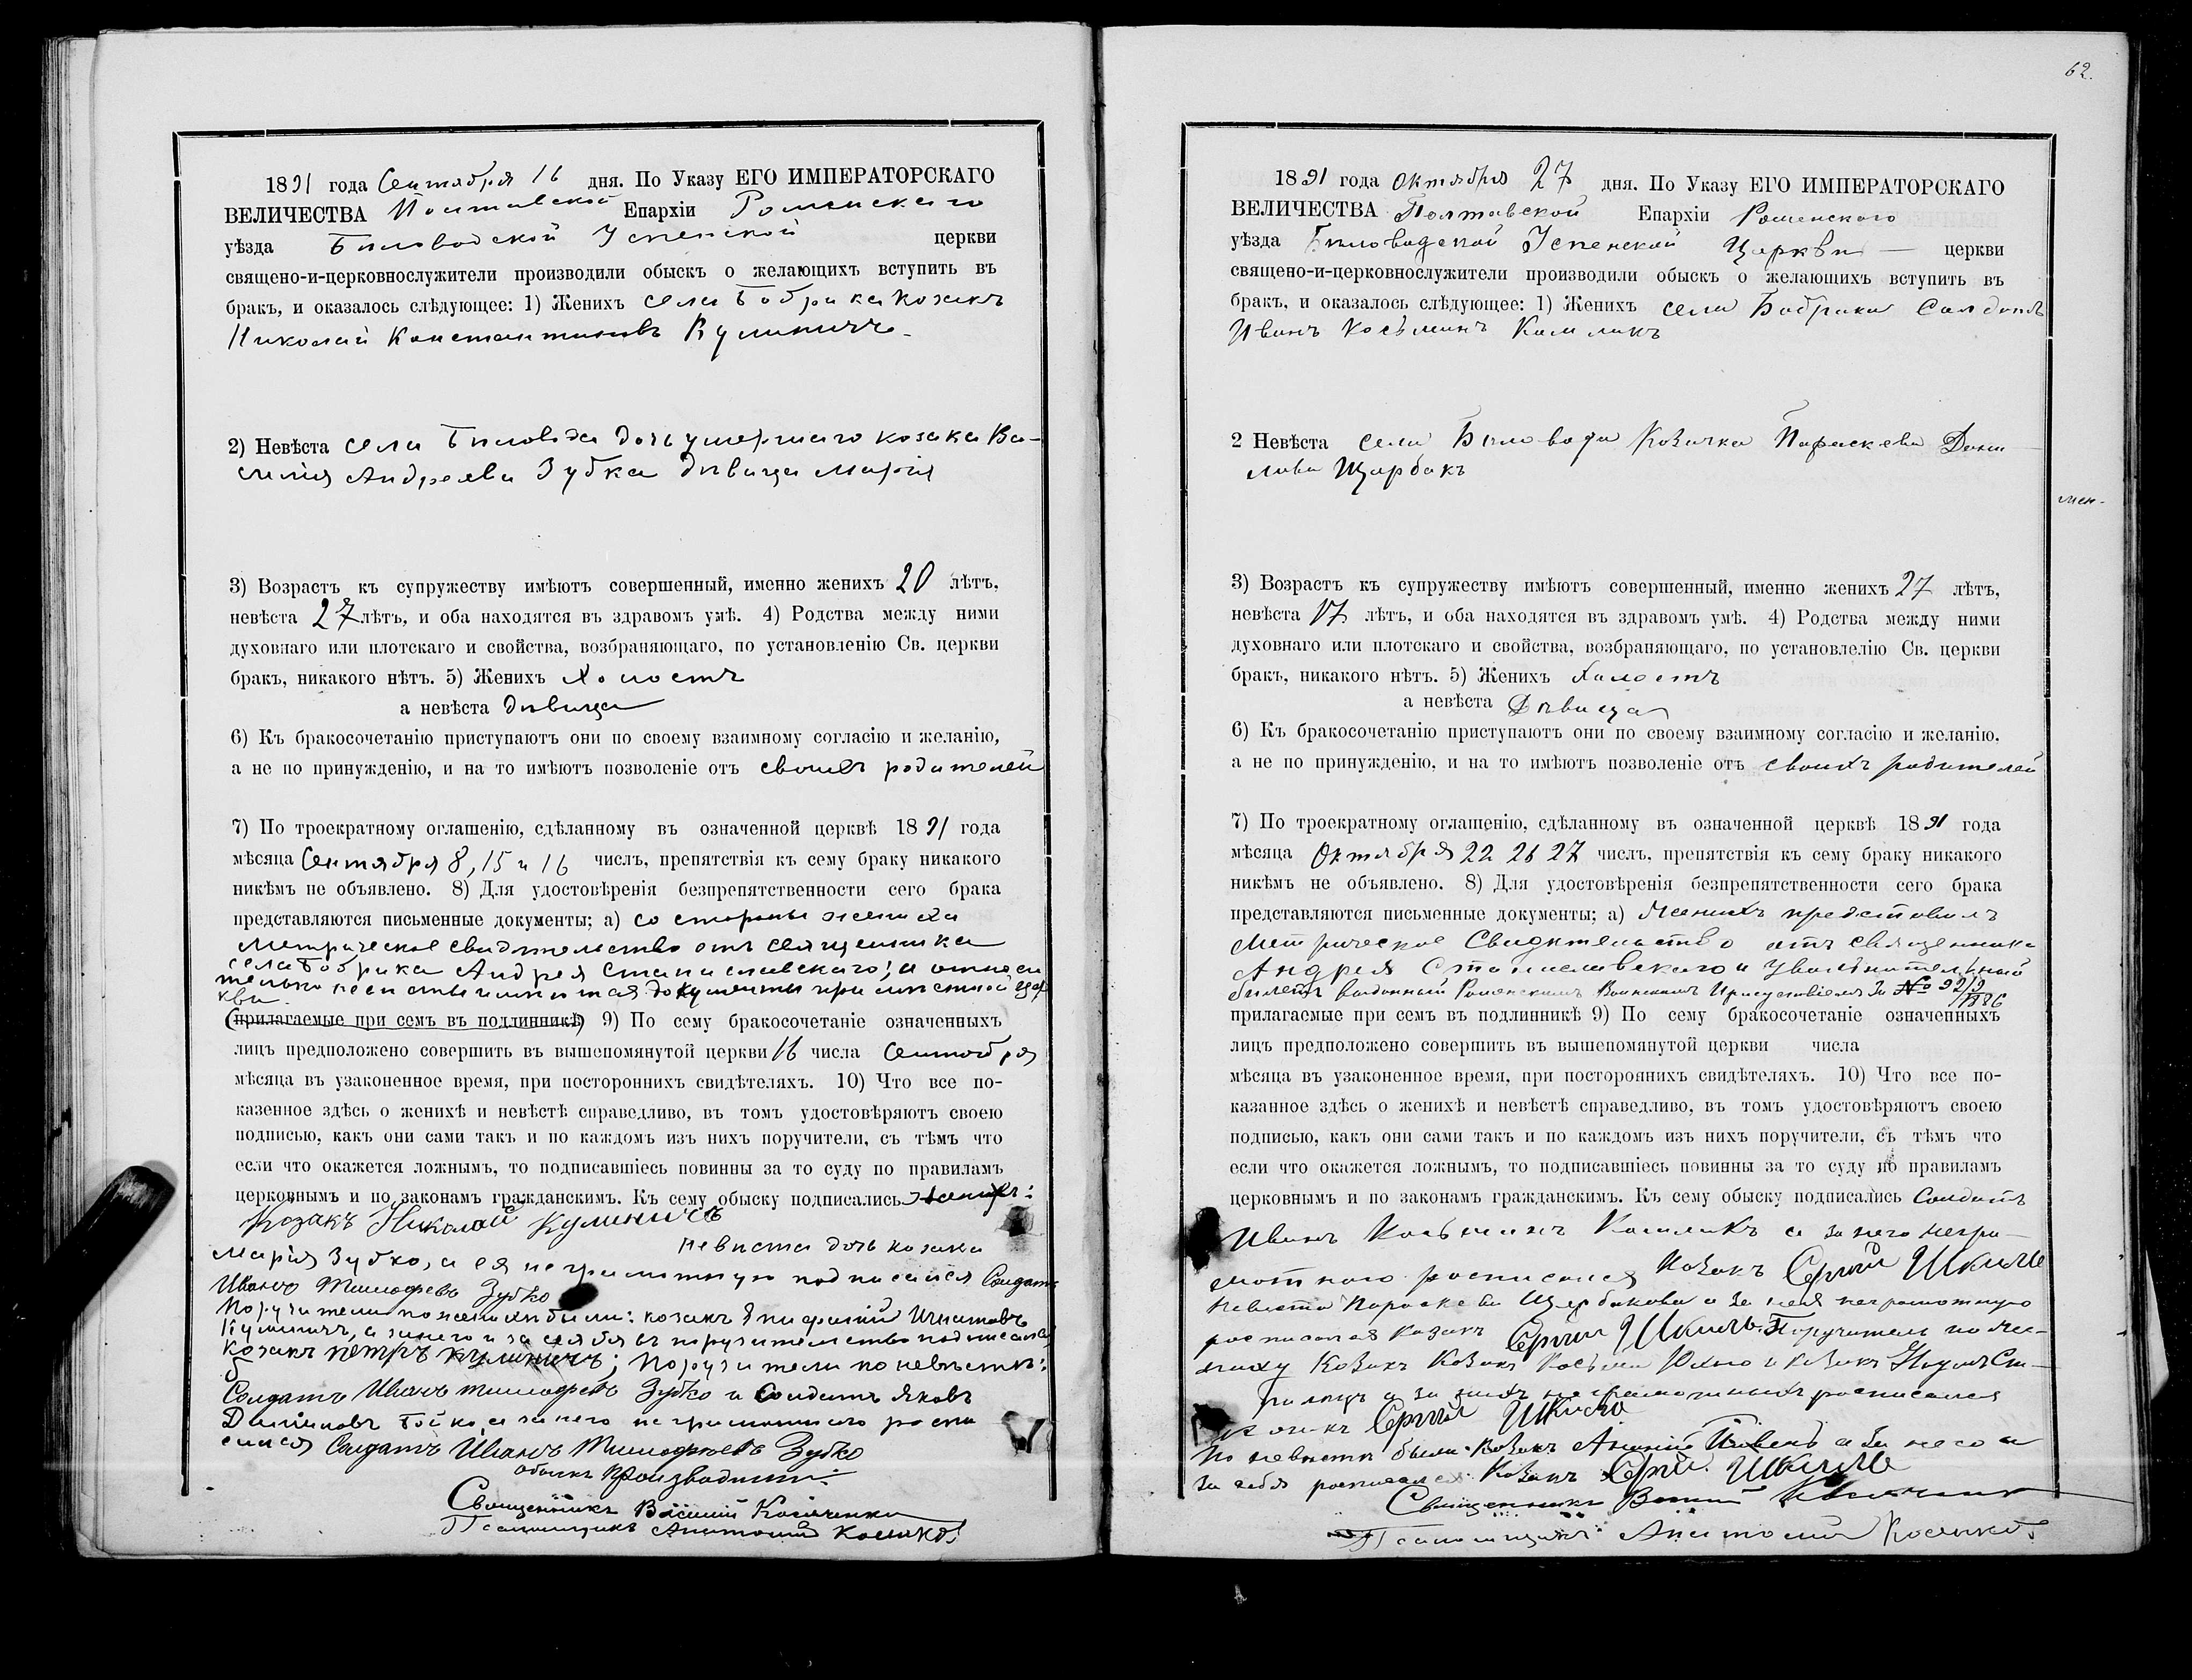 1891 года Сентября 16 дня. По Указу ЕГО ИМПЕРАТОРСКАГО
ВЕЛИЧЕСТВА Полтавской Епархіи Роменскаго
уѣзда Бѣловодской Успенской церкви
священо-и-церковнослужители производили обыскъ о желающихъ вступить въ
бракъ, и оказалось слѣдующее: 1) Женихъ села Бобрика козакъ
Николай Константиновъ Кулиничъ.
2) Невѣста села Бѣловода дочь умершаго козака Ва-
силія Андреева Зубка дѣвица Марія
3) Возрастъ къ супружеству имѣютъ совершенный, именно женихъ 20 лѣтъ,
невѣста 27 лѣтъ, и оба находятся въ здравомъ умѣ. 4) Родства между ними
духовнаго или плотскаго и свойства, возбраняющаго, по установленію Св. церкви
бракъ, никакого нѣтъ. 5) Женихъ Холостъ
а невѣста дѣвица
6) Къ бракосочетанію приступаютъ они по своему взаимному согласію и желанію,
а не по принужденію, и на то имѣютъ позволеніе отъ своихъ родителей
7) По троекратному оглашенію, сдѣланному въ означенной церквѣ 1891 года
мѣсяца Сентября 8, 15 и 16 числъ, препятствія къ сему браку никакого
никѣмъ не объявлено. 8) Для удостовѣренія безпрепятственности сего брака
представляются письменные документы; а) со стороны жениха
Метрическое свидѣтельство отъ священника
села Бобрика Андрея Станиславскаго; а
документы при мѣстной цер
кви.
(прилагаемые при семъ въ подлинникѣ) 9) По сему бракосочетаніе означенныхъ
лицъ предположено совершить въ вышепомянутой церкви 16 числа Сентября
мѣсяца въ узаконенное время, при постороннихъ свидѣтеляхъ. 10) Что все по-
казенное здѣсь о женихѣ и невѣстѣ справедливо, въ томъ удостовѣряютъ своею
подписью, какъ они сами такъ и по каждомъ изъ нихъ поручители, съ тѣмъ что
если что окажется ложнымъ, то подписавшіесь повинны за то суду по правиламъ
церковнымъ и по законамъ гражданскимъ. Къ сему обыску подписались женихъ:
Козакъ Николай Кулиничъ
невѣста дочь козака
Марія Зубко, а ея неграмотную подписался Солдатъ
Иванъ Тимофѣевъ Зубко
Поручители по женихѣ были: козакъ Епифаній Игнатовъ
Кулиничъ, а за него и за себя въ поручительство подписался
козакъ Петръ Кулиничъ; Поручители по невѣстѣ:
Солдатъ Иванъ Тимофѣевъ Зубко и Солдатъ Яковъ
Бойко а за него неграмотнаго распи
сался Солдатъ Иванъ Тимофѣевъ Зубко
Обыскъ производили:
Священникъ Василій Косяченко
Псаломщикъ Анатолій
62.
1891 года Октября 27 дня. По Указу ЕГО ИМПЕРАТОРСКАГО
ВЕЛИЧЕСТВА Полтавской Епархіи Роменскаго
уѣзда Бѣловодской Успенской Церкви — церкви
священо-и-церковнослужители производили обыскъ о желающихъ вступить въ
бракъ, и оказалось слѣдующее: 1) Женихъ села Бобрика Солдатъ
Иванъ Косьминъ
2 Невѣста села Бѣловода Козачка Параскева Дани
лова Щербакъ
мен-
3) Возрастъ къ супружеству имѣютъ совершенный, именно женихъ 27 лѣтъ,
невѣста 17 лѣтъ, и оба находятся въ здравомъ умѣ. 4) Родства между ними
духовнаго или плотскаго и свойства, возбраняющаго, по установлелію Св. церкви
бракъ, никакого нѣтъ. 5) Женихъ Холостъ
а невѣста Дѣвица
6) Къ бракосочетанію приступаютъ они по своему взаимному согласію и желанію,
а не по принужденію, и на то имѣютъ позволеніе отъ своихъ родителей
7) По троекратному оглашенію, сдѣланному въ означенной церквѣ 1891 года
мѣсяца Октября 22 26 27 числъ, препятствія къ сему браку никакого
никѣмъ не объявлено. 8) Для удостовѣренія безпрепятственности сего брака
представляются письменные документы; а) Женихъ представилъ
Метрическое Свидѣтельство отъ священника
Андрея Станиславскаго и Увольнительный
билетъ выданный Роменскимъ Воинскимъ Присутствіемъ За №
прилагаемые при семъ въ подлинникѣ 9) По сему бракосочетаніе означенныхъ
лицъ предположено совершить въ вышепомянутой церкви числа
мѣсяца въ узаконенное время, при постороянихъ свидѣтеляхъ. 10) Что все по-
казанное здѣсь о женихѣ и невѣстѣ справедливо, въ томъ удостовѣряютъ своею
подписью, какъ они сами такъ и по каждомъ изъ нихъ поручители, съ тѣмъ что
если что окажется ложнымъ, то подписавшіесь повинны за то суду по правиламъ
церковнымъ и по законамъ гражданскимъ. Къ сему обыску подписались Солдатъ
Иванъ Косьминъ а за него негра-
мотнаго росписался Козакъ Сергій
Невеста Параскева Щербакова а за нея неграмотную
росписался козакъ Сергій Поручитель по же-
ниху Козакъ Козакъ Косьма и козакъ Наумъ
а за нихъ неграмотныхъ росписался
козакъ Сергій
По невестѣ были Козакъ а за него и
за себя росписался Козакъ Сергій
Священникъ
Псаломщикъ Анатолій